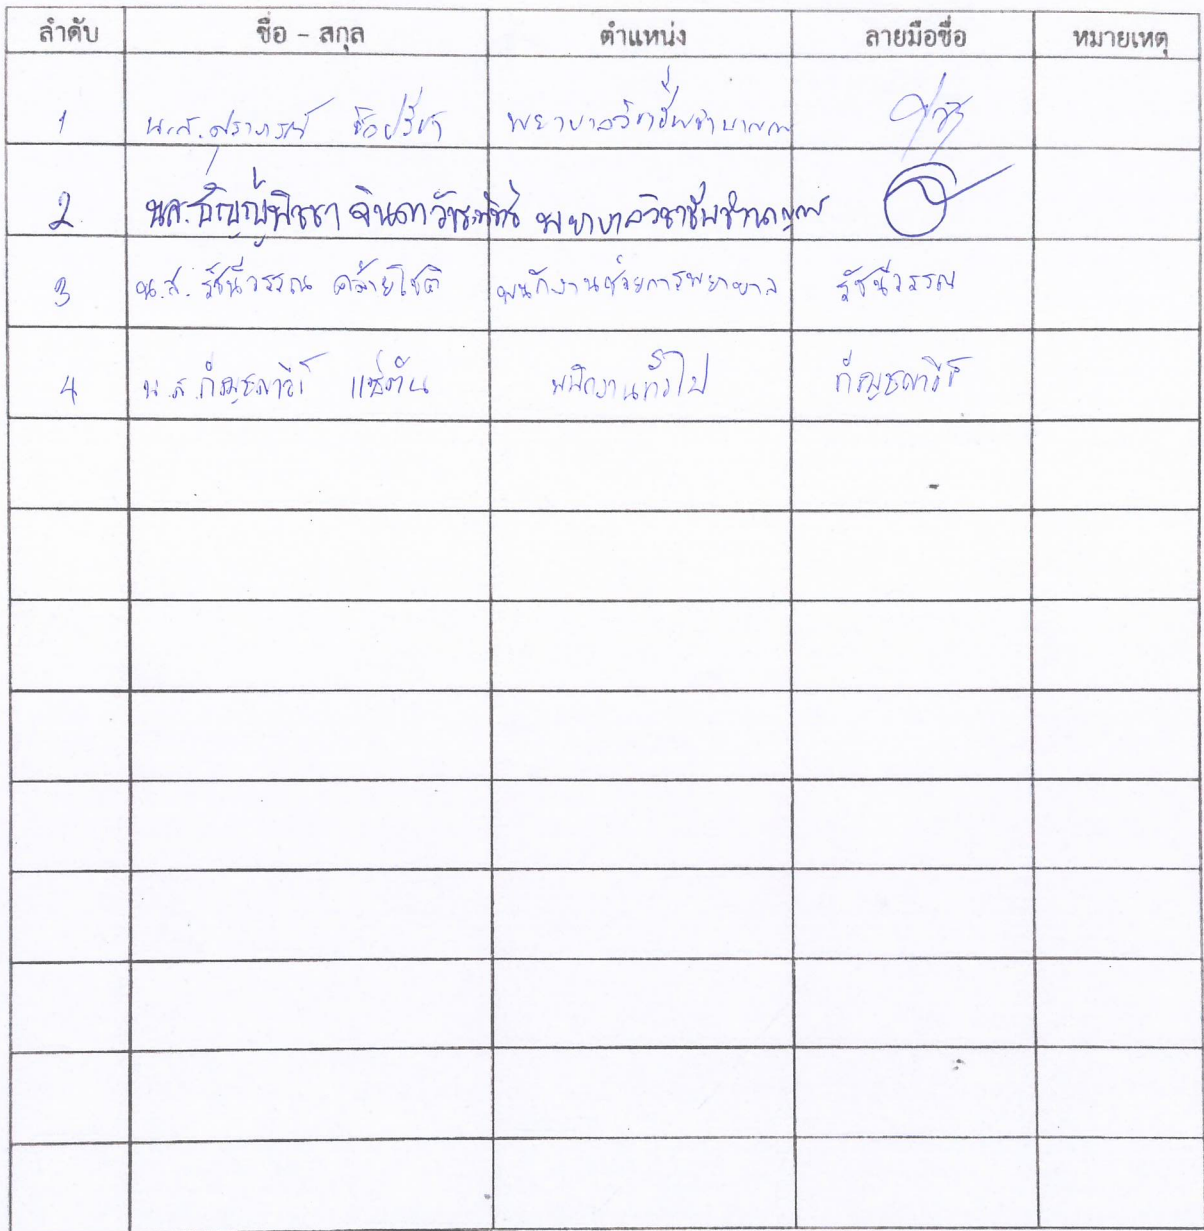 ลำดับ ชื่อ - สกุล ตำแหน่ง ลายมือชื่อ หมายเหตุ
1 น.ส. สุราภรณ์ พยาบาลวิชาชีพชำนาญการ
2 นส. ธัญญ์พิชชา จินดาวัชรพิทธ์ พยาบาลวิชาชีพชำนาญการ
3 น.ส. รัชนีวรรณ คล้ายโชติ พนักงานช่วยการพยาบาล รัชนีวรรณ
4 น.ส. แซ่ตัน พนักงานทั่วไป